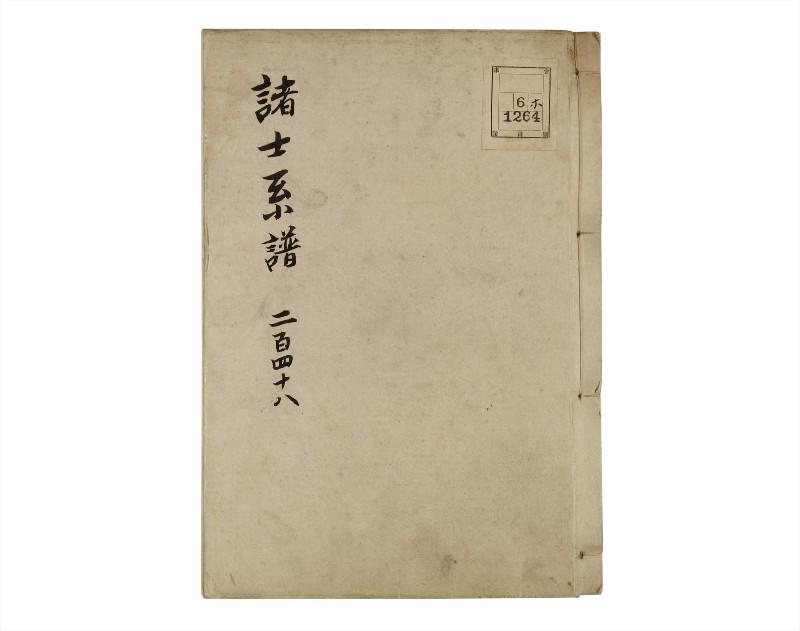 諸士系譜 二百四十八
6 ホ
1264